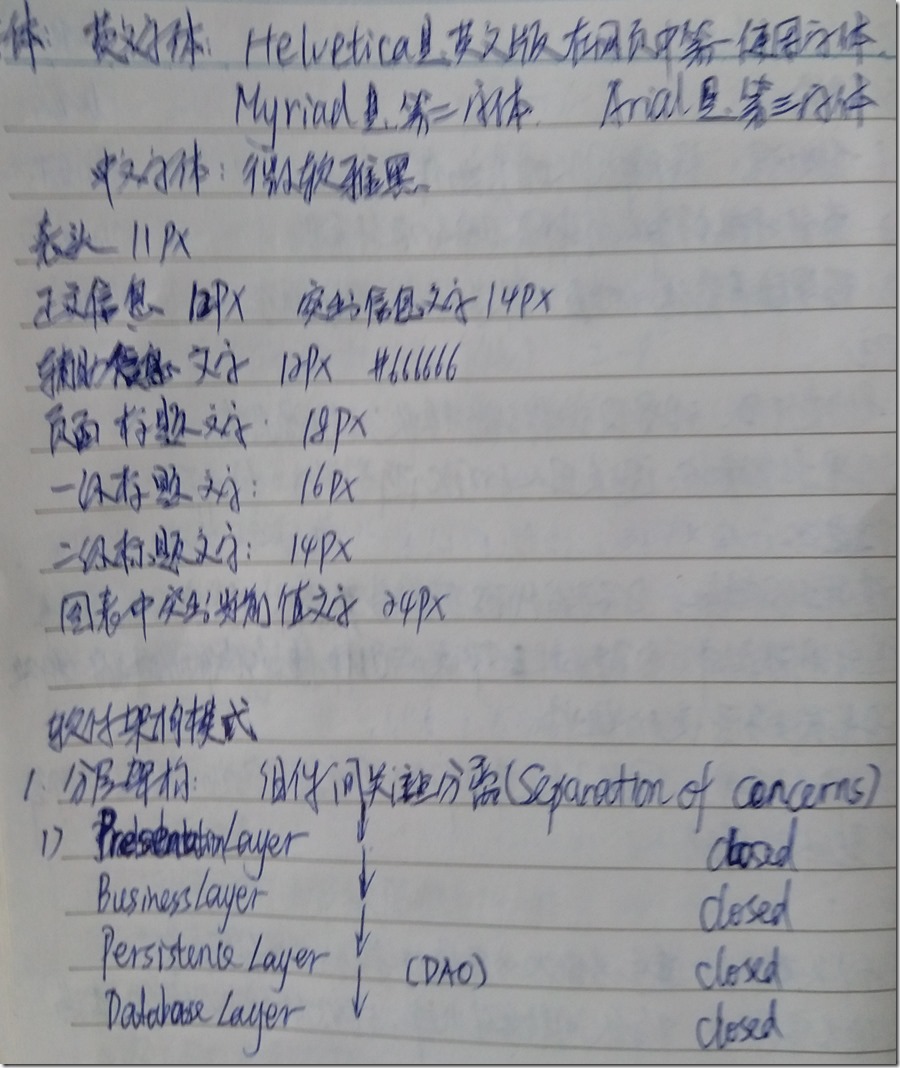 体: 英文字体: Helvetica是英文版在网页中第一使用字体.
Myriad是第二字体. Arial是第三字体
中文字体: 微软雅黑.
表头 11PX
正文信息 12PX 突出信息文字 14PX
辅助信息文字 12PX #666666
页面标题文字: 18PX
一级标题文字: 16PX
二级标题文字: 14PX
图表中突出数值文字 24PX
软件架构模式
1. 分层架构: 组件间关注分离(Separation of concerns)
1) Presentation Layer closed
Business Layer closed
Persistence Layer (DAO) closed
Database Layer closed